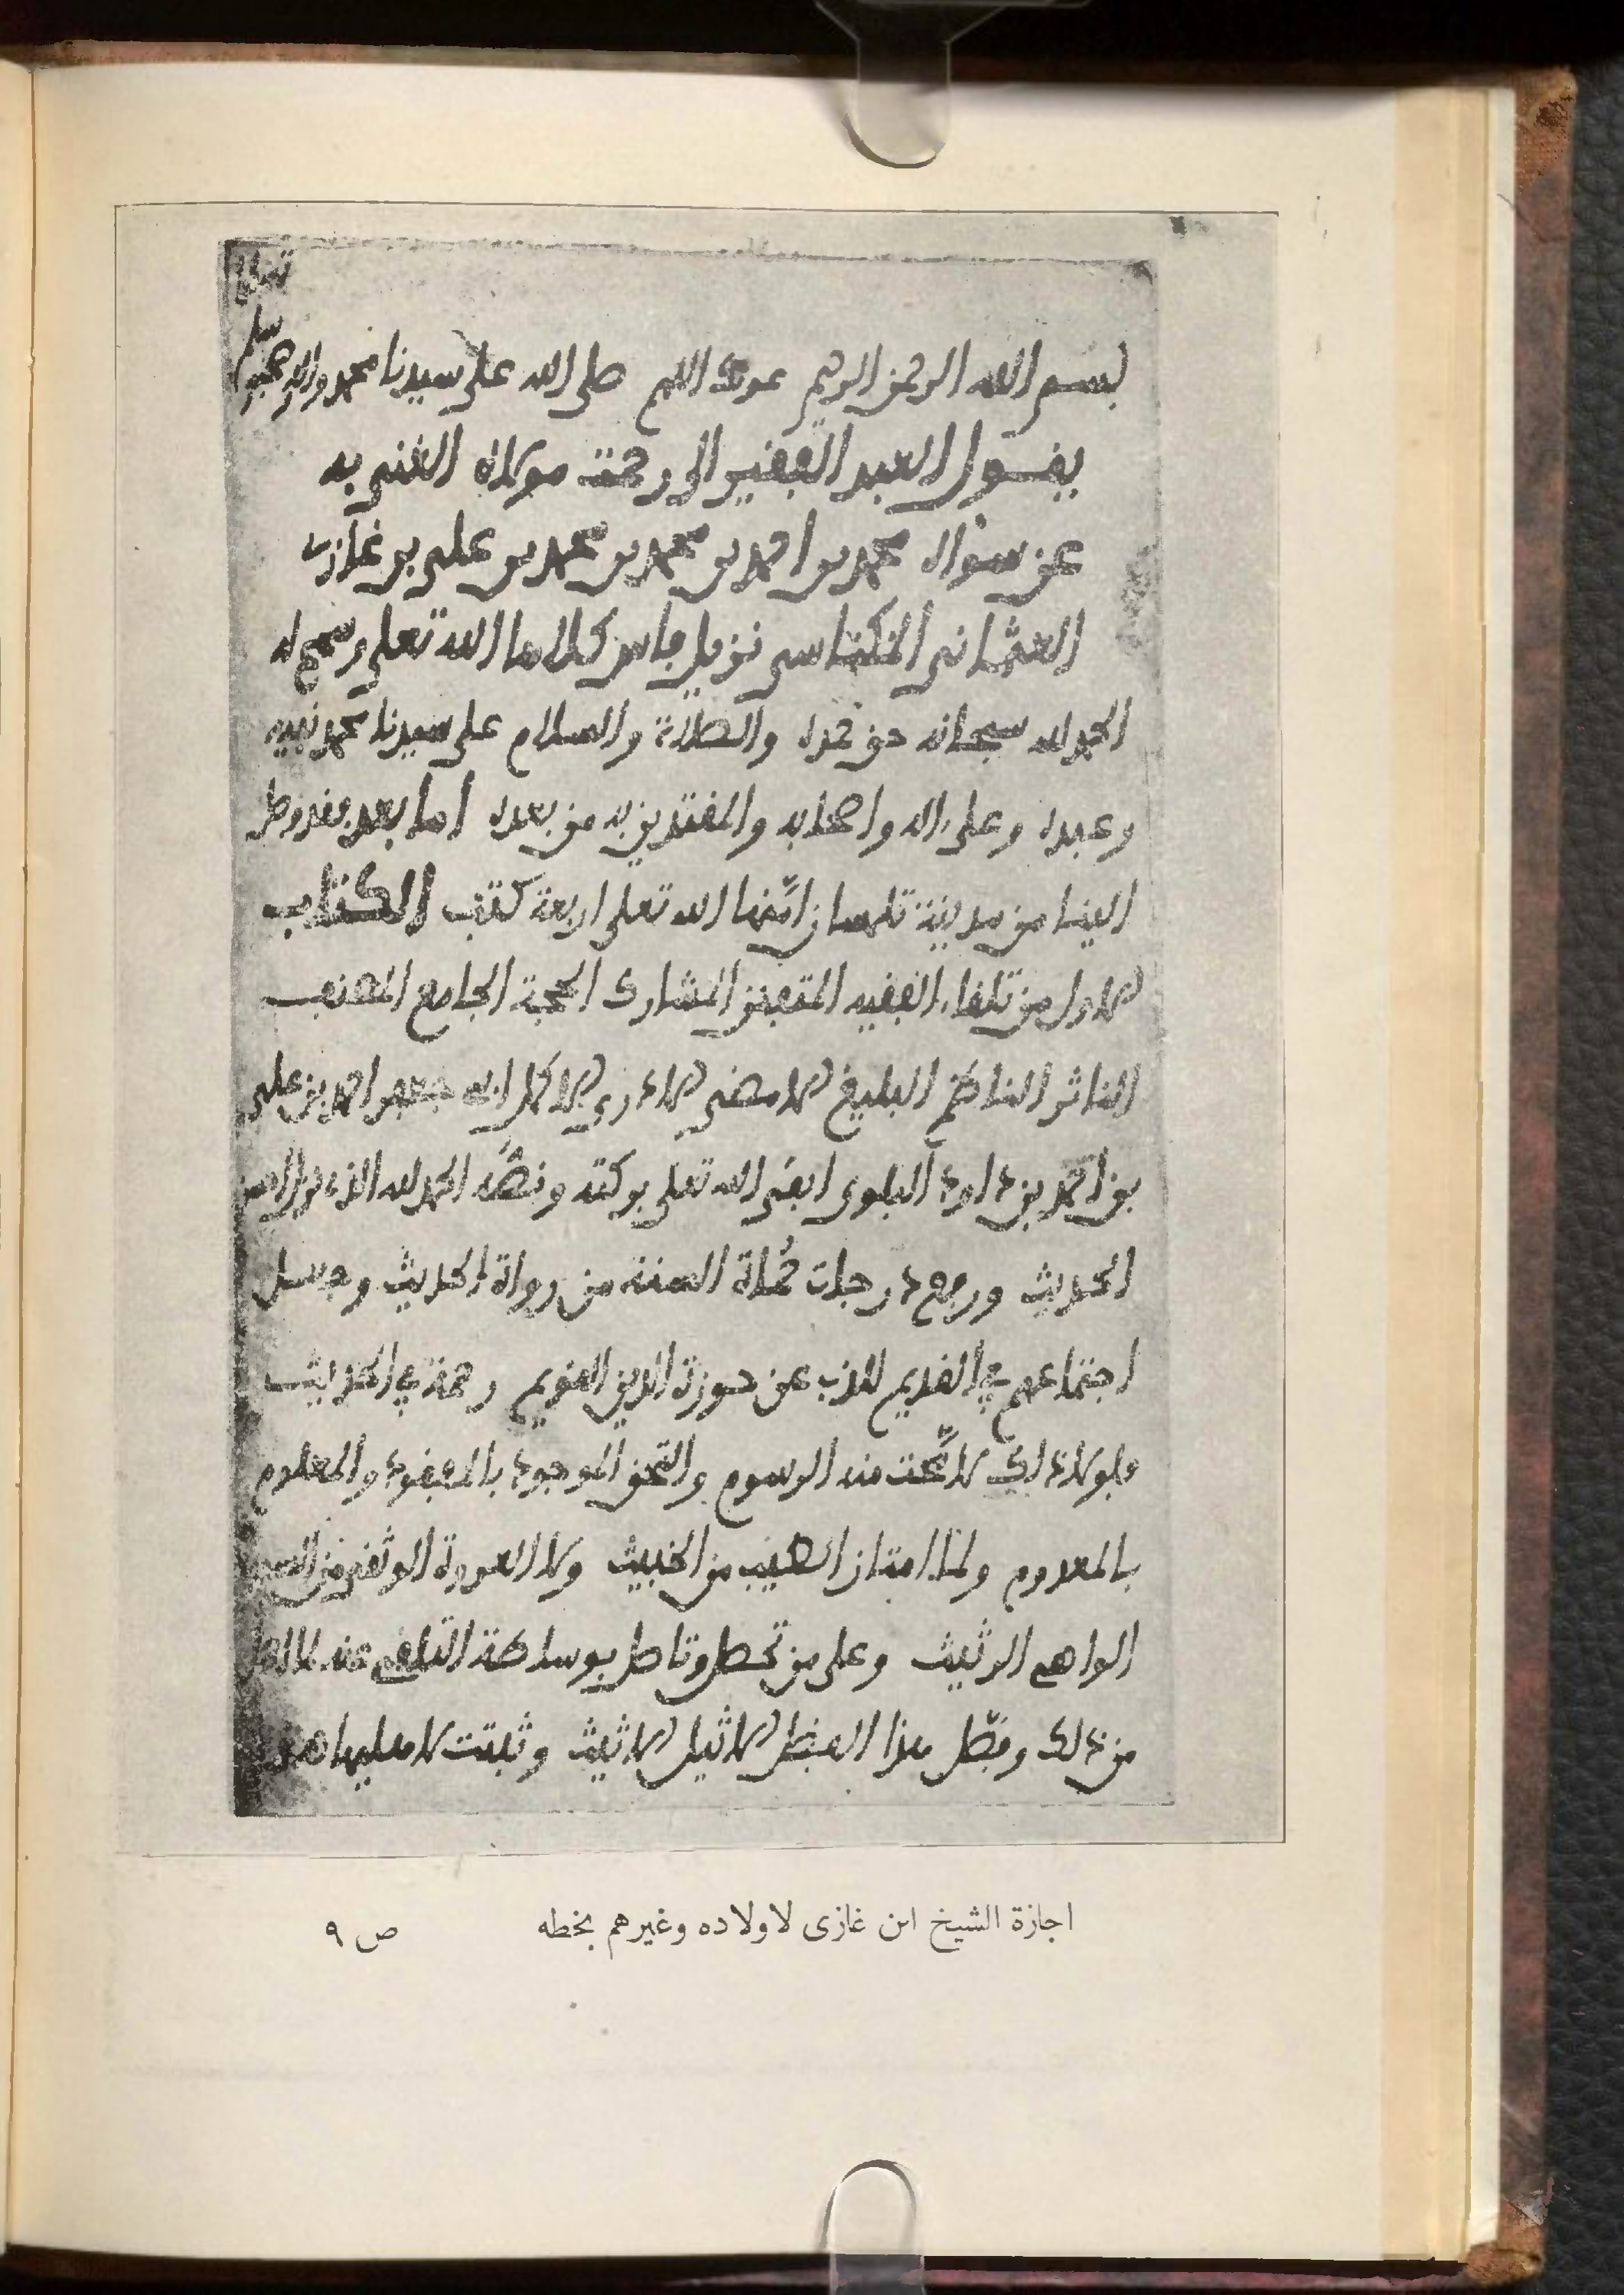 تعلى
بسم الله الرحمن الرحيم عونك اللهم صلى الله على سيدنا محمد واله وصحبه وسلم
يقول العبد الفقير الى رحمة مولاه الغني به
عن سواه محمد بن احمد بن محمد بن محمد بن علي بن غازي
العثماني المكناسي نزيل فاس كلاها الله تعلى وسمح له
الحمد لله سبحانه حق حمده والصلاة والسلام على سيدنا محمد نبيه
وعبده وعلى ءاله واصحابه والمقتدين به من بعده اما بعد فقد وصل
الينا من مدينة تلمسان امنها الله تعلى اربعة كتب الكتاب
الاول من تلقاء الفقيه المتفنن المشارك الحجة الجامع المصنف
الناثر الناظم البليغ الامضى الادرى الاكمل ابي جعفر احمد بن علي
بن احمد بن داود البلوي ابقى الله تعلى بركته ونصه الحمد لله الذي نزل احسن
الحديث ورفع درجات حملة السنة من رواة الحديث وجعل
اجتماعهم في القديم للذب عن حوزة الدين القويم رحمة في الحديث
ولولا ذلك لامحت منه الرسوم والتحق الموجود بالمفقود والمعلوم
بالمعدوم ولما امتاز الطيب من الخبيث ولا العروة الوثقى من السبب
الواهي الرثيث وعلى من تحصل وتاصل بوساطة التلقي عنه
من ذلك وفصل هذا الفضل الاثيل الاثيث وثبتت
اجازة الشيخ ابن غازى لاولاده وغيرهم بخطه
ص ٩